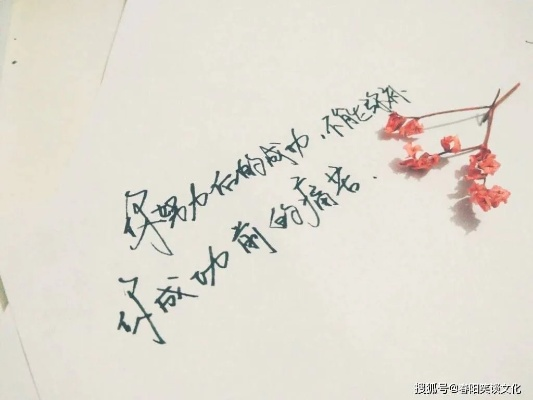 你努力后的成功，不能弥补
你成功前的痛苦.
搜狐号@春阳笑谈文化